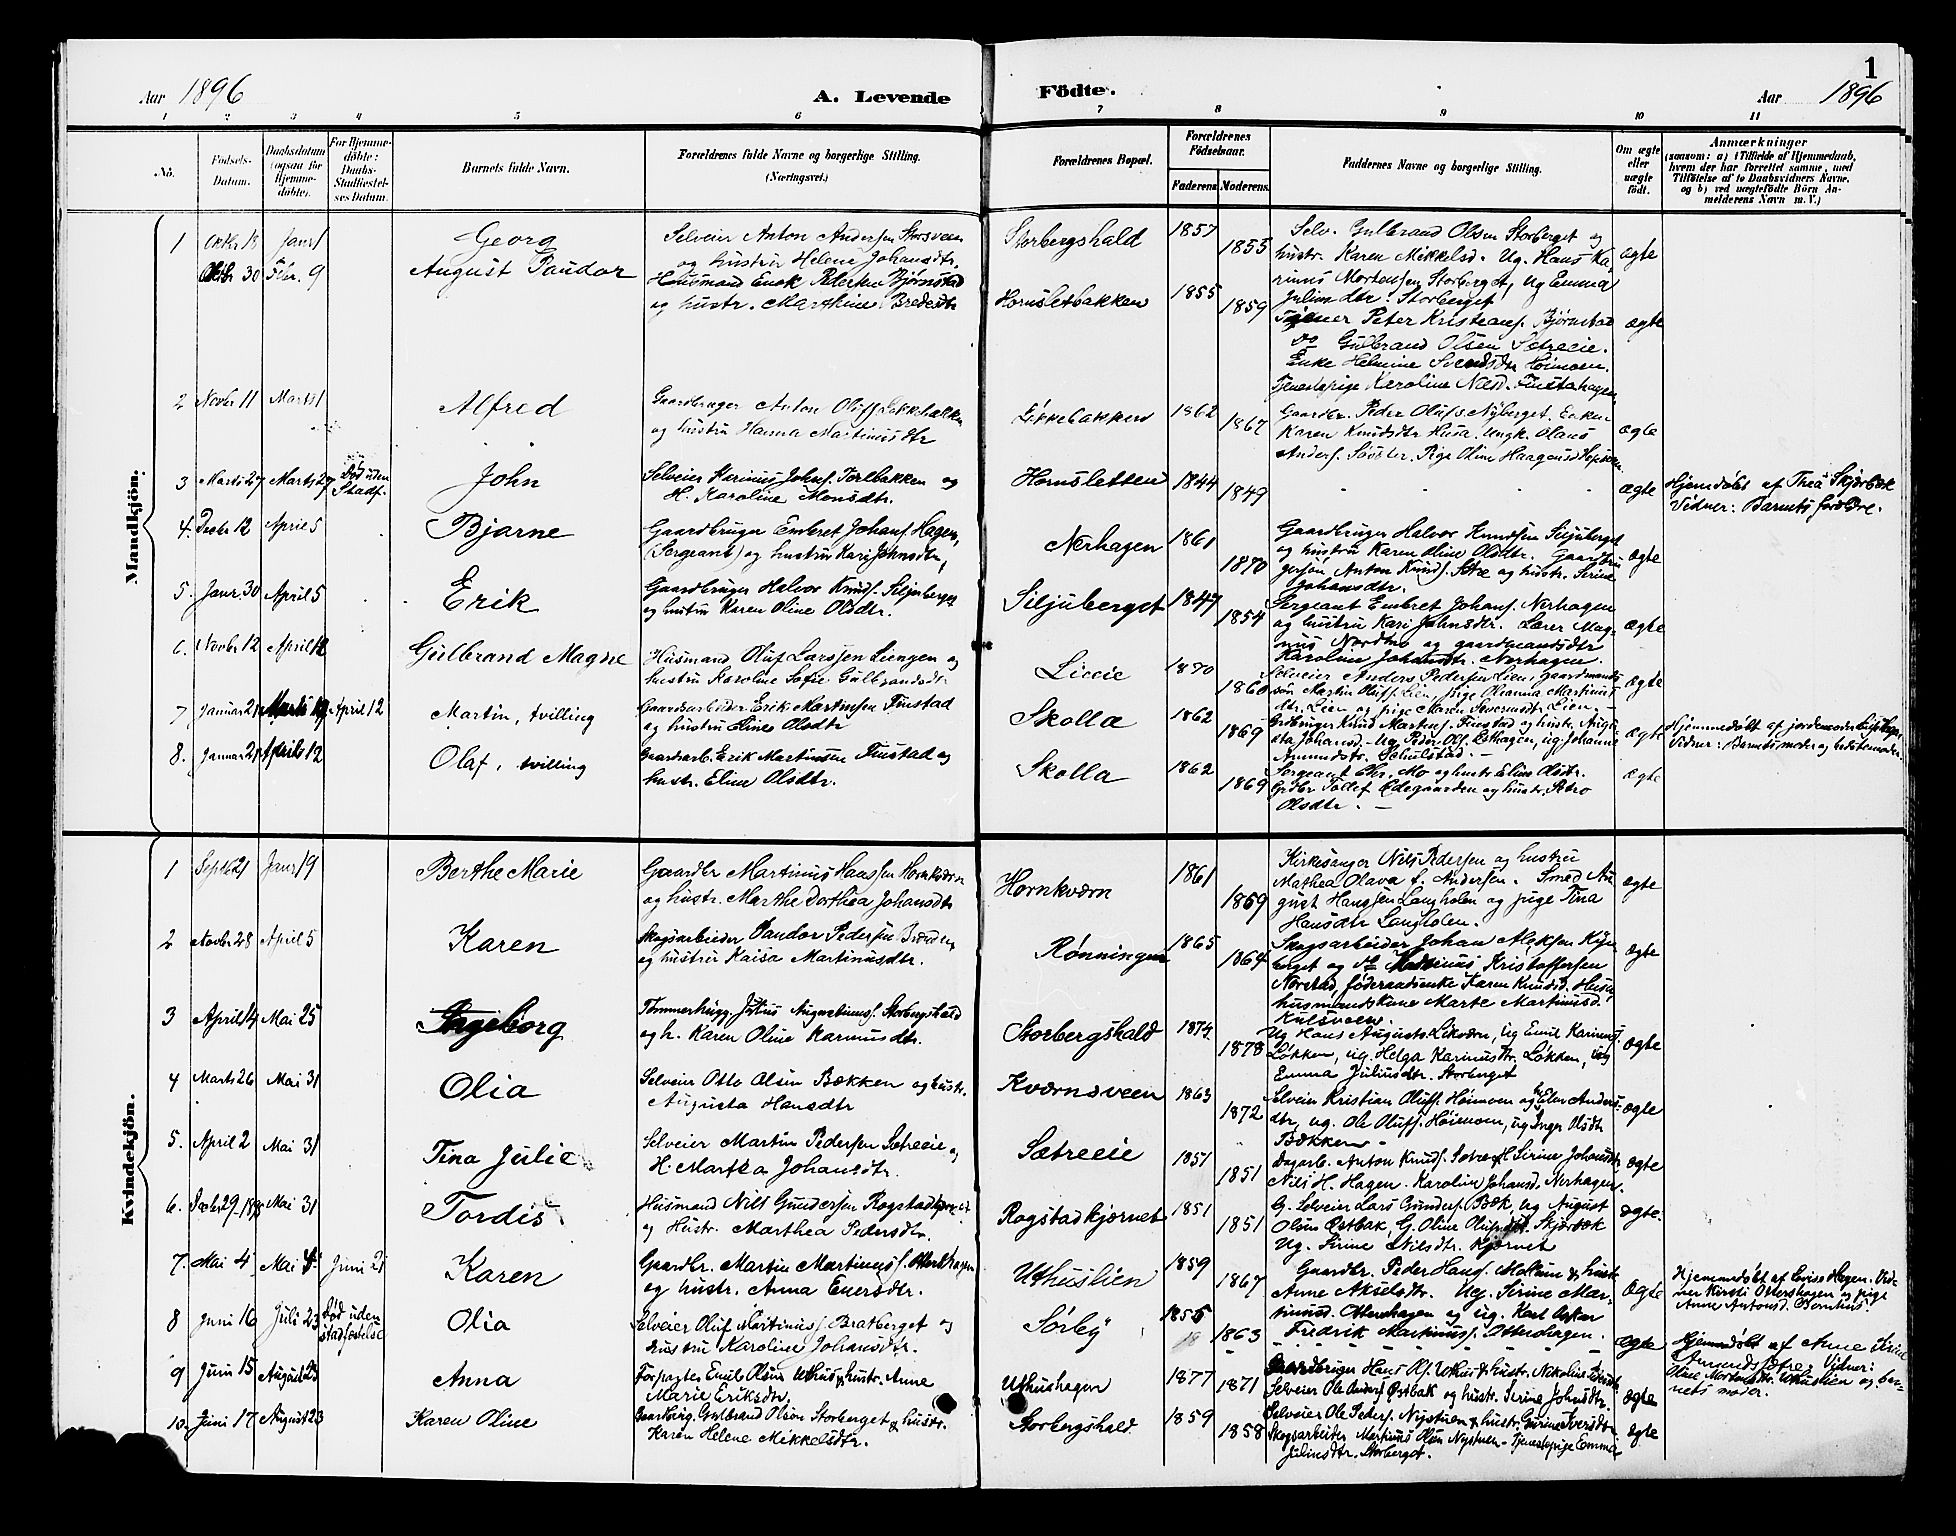 1
Aar 1896 A. Levende Födte. Aar 1896
1 2 3 4 5 6 7 8 9 10 11
No.
Födsels-
Datum.
Daabsdatum
(ogsaa for
Hjemme-
döbte).
For Hjemme-
döbte:
Daabs-
Stadfæstel-
ses Datum.
Barnets fulde Navn.
Forældrenes fulde Navne og borgerlige Stilling.
(Næringsvei.)
Forældrenes Bopæl.
Forældrenes
Födselsaar.
Faderens Moderens.
Faddernes Navne og borgerlige Stilling.
Om ægte
eller
uægte
födt.
Anmærkninger
(saasom: a) i Tilfælde af Hjemmedaab,
hvem der har forrettet samme, med
Tilföielse af to Daabsvidners Navne,
og b) ved uægtefödte Börn An-
melderens Navn m. V.)
Mandkjön.
1 Oktbr 18 Janr 1
Georg
Selveier Anton Andersen Storsveen
og hustru Helene Johansdtr.
Storbergshald
1857
1855
Selv. Gulbrand Olsen Storberget og
hustr. Karen Mikkelsd. Ug. Hans Ka-
rinus Mortensen Storberget, Ug Emma
Juliusdtr. Storberget
ægte
Oktbr 30 Febr. 9
August Paudor
Husmand Enok Pedersen Bjørnstad
og hustr. Marthine Bredesdtr
Hornsletbakken
1855
1859
Peter Kristians. Bjørnstad
Do Gulbrand Olsen Sætreeie.
Enke Helmine Svendsdtr Høimoen.
Tjenestepige Karoline Nilsd. Finstahagen
ægte
2 Novbr 11 Marts 1
Alfred
Gaardbruger Anton Olufs. Løkkebakken
og hustru Hanna Martinusdtr
Løkkebakken
1862
1867
Gaardbr. Peder Olufs. Nyberget. Enke
Karen Knudsdtr Husa. Ungk. Olaus
Anders. Pige Oline Haagensd.
ægte
3 Marts 27 Marts 27 Død uden
Stadf.
John
Selveier Karinus Johns. Torlbakken og
H. Karoline Monsdtr.
Hornsletten
1844
1849
ægte
Hjemdøbt af Thea Skjærbæk
Vidner: Barnets forældre.
4. Decbr 12 April 5
Bjarne
Gaardbruger Embret Johans. Hagen,
(Sergeant) og hustru Kari Johnsdtr,
Nerhagen
1861
1870
Gaardbruger Halvor Knudsen Siljuberget
og hustru Karen Oline Olsdtr. Gaardbru-
gersøn Anton Knuds. Sætre og hustr. Serine
Johansdtr.
ægte
5. Janr. 30 April 5
Erik
Gaardbruger Halvor Knuds. Siljuberget
og hustru Karen Oline Olsdtr.
Siljuberget
1847
1854
Sergeant Embret Johans. Nerhagen
og hustru Kari Johnsdtr. Lærer Mag-
nus Nordmo og gaardmandsdtr
Karoline Johansdtr. Nerhagen.
ægte
6. Novbr 12 April 12
Gulbrand Magne
Husmand Oluf Larssen Liengen og
hustru Karoline Sofie Gulbrandsdtr.
Lieeie
1870
1860
Selveier Anders Pedersen Lien, gaardmands-
søn Martin Olufs. Lien, pige Olianna Martinus-
dtr. Lien og pige Maren Severensdtr. Lien.
ægte
7 Januar 21 Marts 19 April 12
Martin, tvilling
Gaardsarbeider Erik Martinsen Finstad
og hustru Eline Olsdtr
Skolla
1862
1869
Grdbruger Knud Martins. Finstad og hustr. Augu-
sta Johansd. Ug. Peder Ols. Lethagen, ug. Johanne
Amundsdtr. Schulstad.
ægte
Hjemmedøbt af jordemoder
Vidner: Barnets moder og bedstemoder.
8. Januar 21 April 12
Olaf, tvilling
Gaardsarb. Erik Martinsen Finstad og
hustr. Eline Olsdtr.
Skolla
1862
1869
Sergeant Chr. Mo og hustr. Eline Olsdtr.
Grdbr Tollef Ødegaarden og hustr. Petro
Olsdtr.
ægte
Kvindekjön.
1 Septbr 21 Janr 19
Berthe Marie
Gaardbr Martinus Hanssen Hornkværn
og hustr. Marthe Dorthea Johansdtr
Hornkværn
1861
1859
Kirkesanger Nils Pedersen og hustru
Mathea Olava f. Andersen. Smed Au-
gust Hanssen Langholen og pige Tina
Hansdtr Langholen.
ægte
2 Novbr 28 April 5
Karen
Skogsarbeider Paudor Pedersen
og hustru Kaisa Martinusdtr.
Rønningen
1865
1864
Skogsarbeider Johan Aleksen Kyn-
berget og do Martinus Kristoffersen
Norstad, føderaadsenke Karen Knudsd. Husa
husmandskone Marte Martinusd.
Kulsveen.
ægte
3 April 14 Mai 25
Ingeborg
Tømmerhugg. Julius Augustinuss. Storbergshald
og h. Karen Oline Karinusdtr.
Storbergshald
1874
1878
Ug Hans Augusts. Likværn, ug Emil Karinuss.
Løkken, ug. Helga Karinusdtr. Løkken, ug
Emma Juliusdtr. Storberget
ægte
4 Marts 26 Mai 31
Olia
Selveier Otto Olsen Bækken og hustr.
Augusta Hansdtr
Kværnsveen
1863
1872
Selveier Kristian Olufs. Høimoen og Elen Anders-
dtr, ug. Ole Olufs. Høimoen, ug Inger Olsdtr
Bækken
ægte
5. April 2 Mai 31
Tina Julie
Selveier Martin Pedersen Sætreeie og
H. Martha Johansdtr.
Sætreeie
1857
1851
Dagarb. Anton Knuds. Sætre H Sirine Johansdtr
Nils H. Hagen. Karoline Johansd. Nerhagen.
ægte
6. Decbr 29. 1895 Mai 31
Tordis
Husmand Nils Gundersen Rogstadkjernet
og Hustr. Marthea Pedersdtr.
Rogstadkjernet
1851
1851
G. Selveier Lars Gunders. Bæk, Ug August
Olsen Østbak, G. Oline Olufsdtr. Skjærbæk
Ug. Sirine Nilsdtr. Kjernet
ægte.
7. Mai 4 Mai 4 Juni 21
Karen
Gaardbr. Martin Martinuss. Otterhagen
og hustr. Anna Eversdtr.
Uthuslien
1859
1867
Gaardbr. Peder Hans. Moltun & hustr.
Anne Akselsdtr. Ug. Sirine Mar-
tinusd. Otterhagen og ug. Karl Oskar
Fredrik Martinuss. Otterhagen.
Ægte
Hjemmedøbt af Lovise Hagen. Vid-
ner Kirsti Ottershagen og pige
Anne Antonsd. Bornhus
8 Juni 16 Juli 23 Død uden
stadfæstelse
Olia
Selveier Oluf Martinuss. Bratberget og
hustru Karoline Johansdtr.
Sørby
1855
1863
ægte
Hjemdøbt af Anne Serine
Amundsætre; Vidner:
Oline Mortensdtr. Uthuslien og bar-
nets moder.
9 Juni 15 August 23
Anna
Forpagter Emil Olsen Uthus & hustr. Anne
Marie Eriksdtr.
Uthushagen
1877
1871
Gaardbruger Hans Ols. Uthus & hustr. Nikoline Pedersdtr
Selveier Ole Anders. Østbak og hustr. Serine Johnsdtr.
ægte
10. Juni 17 August 23
Karen Oline
Gaardbrug. Gulbrand Olsen Storberget & hustr.
Karen Helene Mikkelsdtr.
Storbergshald.
1859
1858
Selveier Ole Peders. Nystuen & hustr. Gurine Iversdtr
Skogsarbeider Martinus Olsen Nystuen. Tjenestepige Emma
Juliusdtr. Storberget.
ægte